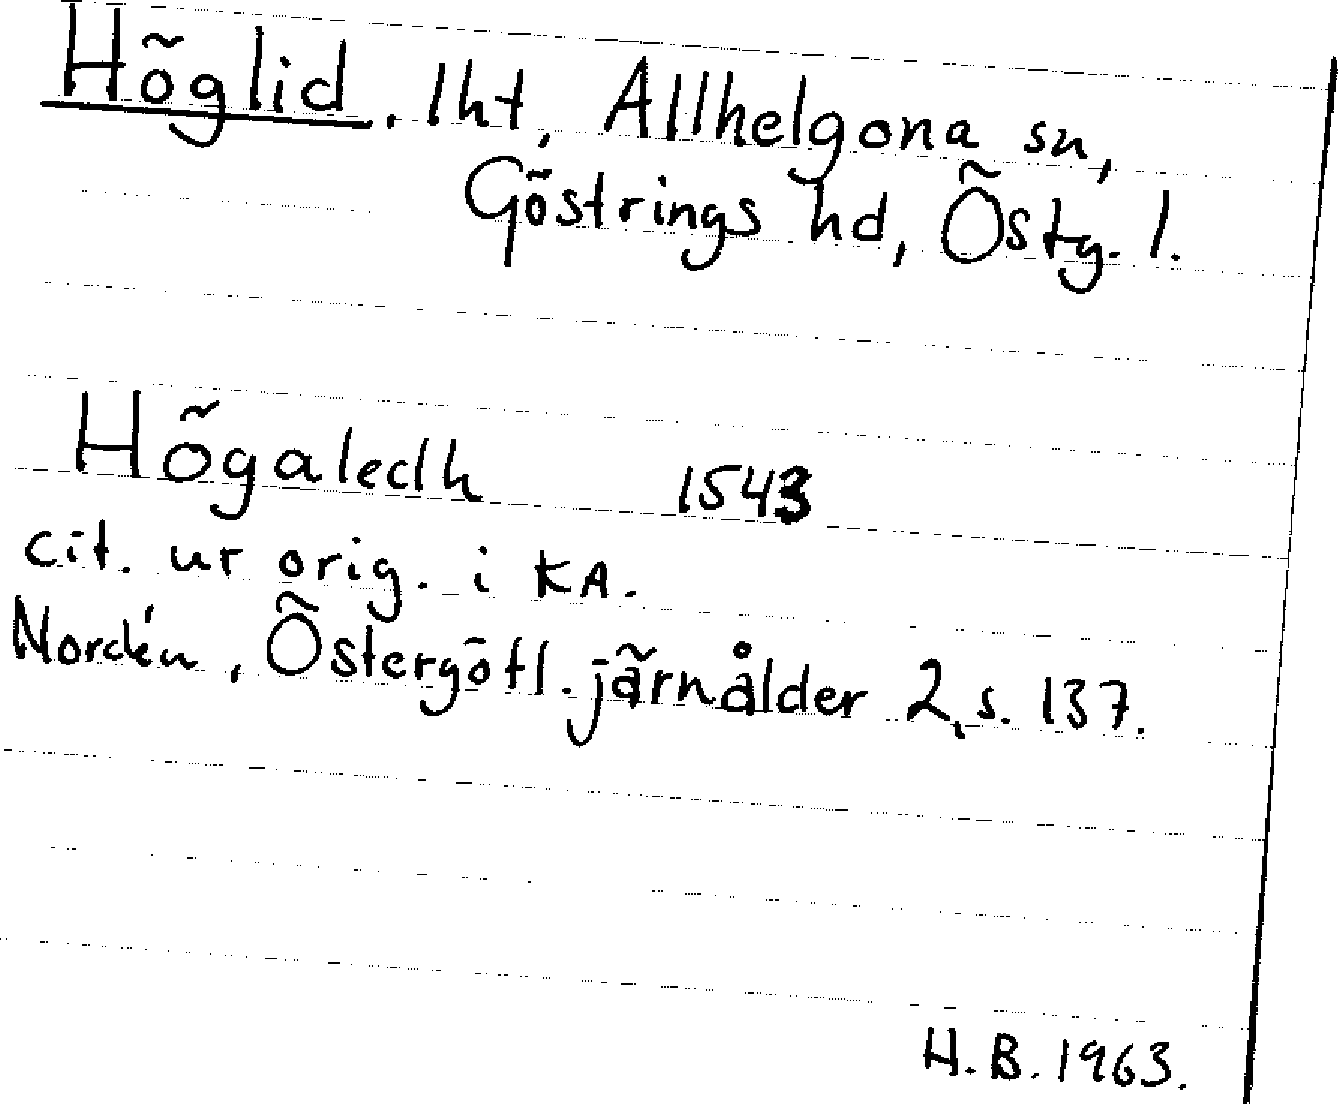 Höglid, lht, Allhelgona sn,
Göstrings hd, Östg. l.
Högaledh 1543
cit. ur orig. i KA.
Nordén, Östergötl. järnålder 2, s. 137.
H.B. 1963.